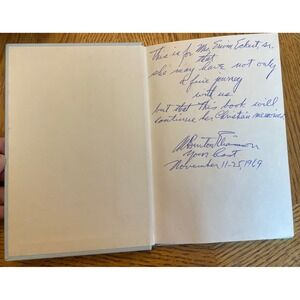 This is for Mrs. Irvin Eckert, sr.
that
she may have not only
a fine journey
with us
but that this book will
continue her Christian memories.
W Burton
Your host
November 11-25, 1969